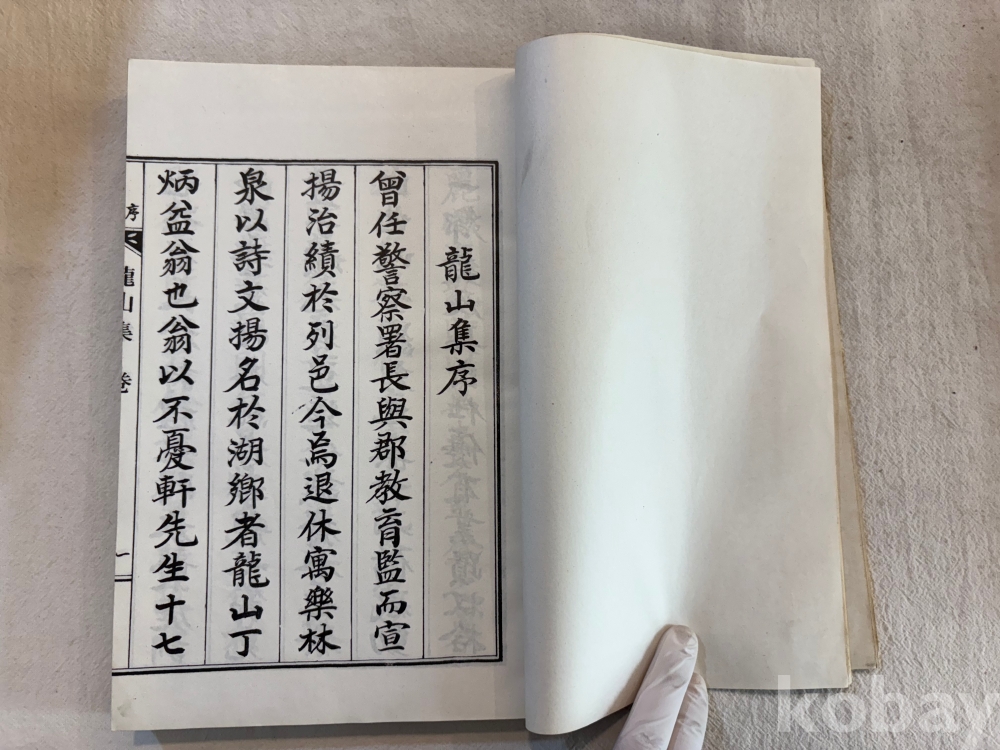 龍山集序
曾任警察署長與郡教育監而宣
揚治績於列邑今焉退休寓樂林
泉以詩文揚名於湖鄉者龍山丁
炳益翁也翁以不憂軒先生十七
序
龍山集 卷
一
kobay